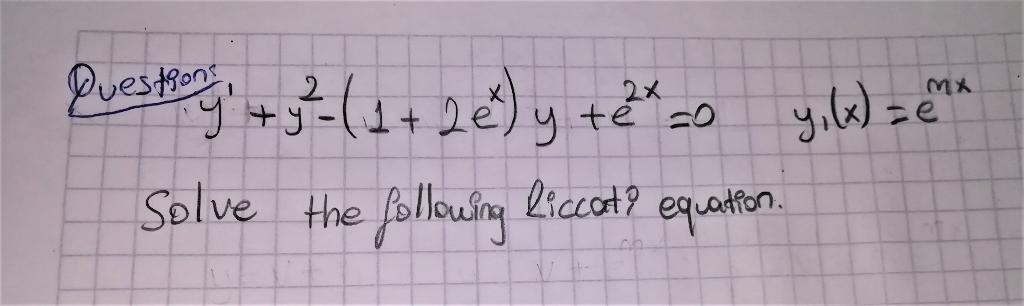 Question: y' + y² - (1 + 2eˣ) y + e²ˣ = 0 y₁(x) = eᵐˣ
Solve the following Riccati equation.